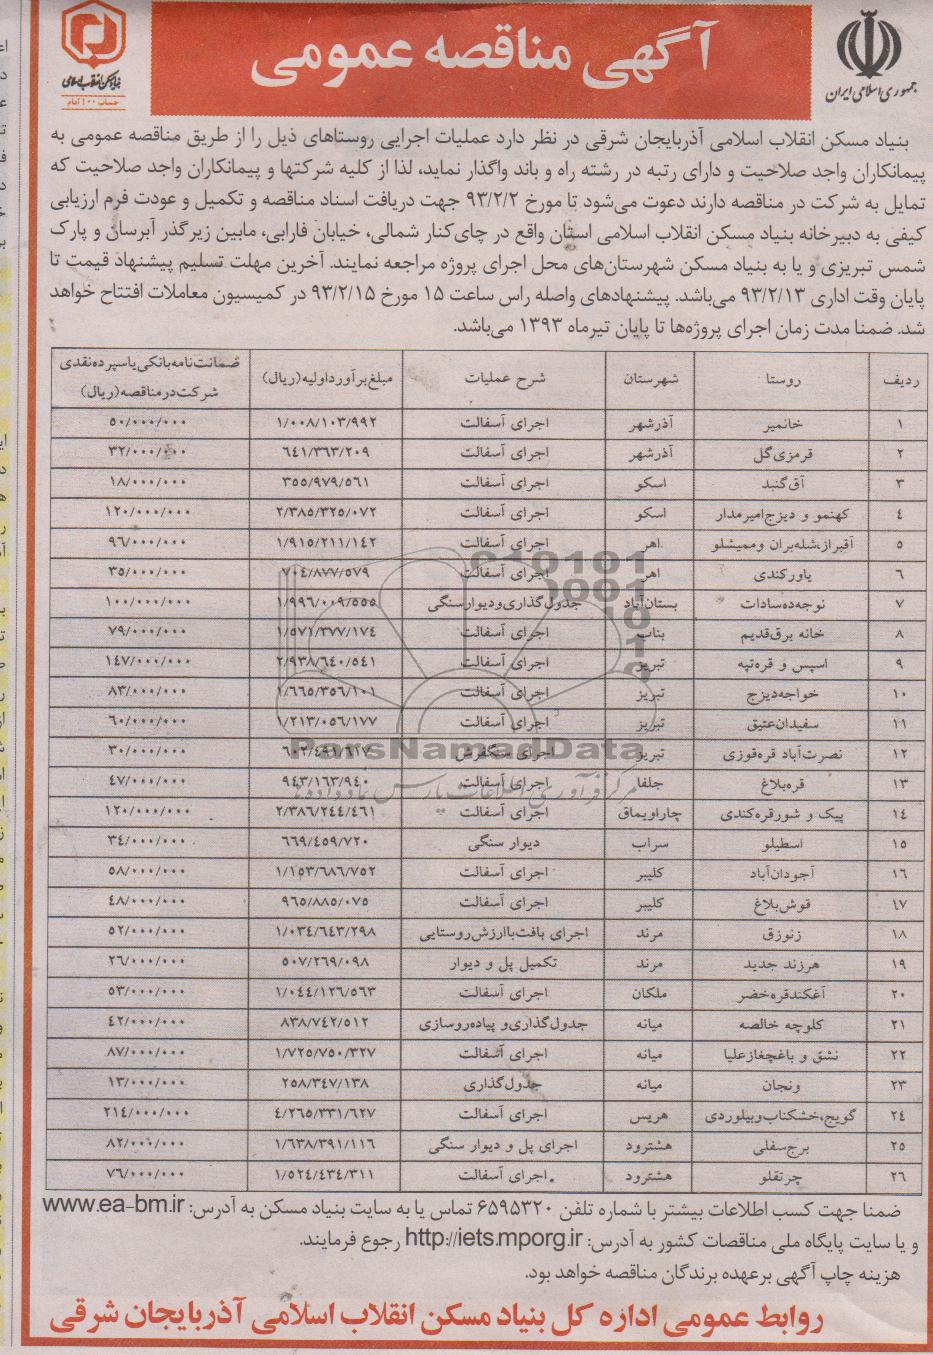 آگهی مناقصه عمومی
جمهوری اسلامی ایران
بنیاد مسکن انقلاب اسلامی
حساب ۱۰۰ امام
بنیاد مسکن انقلاب اسلامی آذربایجان شرقی در نظر دارد عملیات اجرایی روستاهای ذیل را از طریق مناقصه عمومی به
پیمانکاران واجد صلاحیت و دارای رتبه در رشته راه و باند واگذار نماید، لذا از کلیه شرکتها و پیمانکاران واجد صلاحیت که
تمایل به شرکت در مناقصه دارند دعوت می‌شود تا مورخ ۹۳/۲/۲ جهت دریافت اسناد مناقصه و تکمیل و عودت فرم ارزیابی
کیفی به دبیرخانه بنیاد مسکن انقلاب اسلامی استان واقع در چای‌کنار شمالی، خیابان فارابی، مابین زیرگذر آبرسان و پارک
شمس تبریزی و یا به بنیاد مسکن شهرستان‌های محل اجرای پروژه مراجعه نمایند. آخرین مهلت تسلیم پیشنهاد قیمت تا
پایان وقت اداری ۹۳/۲/۱۳ می‌باشد. پیشنهادهای واصله راس ساعت ۱۵ مورخ ۹۳/۲/۱۵ در کمیسیون معاملات افتتاح خواهد
شد. ضمنا مدت زمان اجرای پروژه‌ها تا پایان تیرماه ۱۳۹۳ می‌باشد.
ردیف روستا شهرستان شرح عملیات مبلغ برآورد اولیه (ریال) ضمانت‌نامه بانکی یا سپرده نقدی شرکت در مناقصه (ریال)
۱ خانمیر آذرشهر اجرای آسفالت ۱/۰۰۸/۱۰۳/۹۹۲ ۵۰/۰۰۰/۰۰۰
۲ قرمزی‌گل آذرشهر اجرای آسفالت ۶۴۱/۳۶۳/۲۰۹ ۳۲/۰۰۰/۰۰۰
۳ آق‌گنبد اسکو اجرای آسفالت ۳۵۵/۹۷۹/۵۶۱ ۱۸/۰۰۰/۰۰۰
۴ کهنمو و دیزج‌امیرمدار اسکو اجرای آسفالت ۲/۳۸۵/۳۲۵/۰۷۲ ۱۲۰/۰۰۰/۰۰۰
۵ آقبراز،شله‌بران و ممیشلو اهر اجرای آسفالت ۱/۹۱۵/۲۱۱/۱۴۲ ۹۶/۰۰۰/۰۰۰
۶ یاورکندی اهر اجرای آسفالت ۷۰۴/۸۷۷/۵۷۹ ۳۵/۰۰۰/۰۰۰
۷ نوجه‌ده‌سادات بستان‌آباد جدول‌گذاری و دیوارسنگی ۱/۹۹۶/۰۰۹/۵۵۵ ۱۰۰/۰۰۰/۰۰۰
۸ خانه برق‌قدیم بناب اجرای آسفالت ۱/۵۷۱/۳۷۷/۱۷۴ ۷۹/۰۰۰/۰۰۰
۹ اسپس و قره‌تپه تبریز اجرای آسفالت ۲/۹۳۸/۶۴۰/۵۴۱ ۱۴۷/۰۰۰/۰۰۰
۱۰ خواجه‌دیزج تبریز اجرای آسفالت ۱/۶۶۵/۳۵۶/۱۰۱ ۸۳/۰۰۰/۰۰۰
۱۱ سفیدان‌عتیق تبریز اجرای آسفالت ۱/۲۱۳/۰۵۶/۱۷۷ ۶۰/۰۰۰/۰۰۰
۱۲ نصرت‌آباد قره‌قوزی تبریز اجرای سنگفرش ۶۰۲/۴۹۱/۶۱۷ ۳۰/۰۰۰/۰۰۰
۱۳ قره‌بلاغ جلفا اجرای آسفالت ۹۴۳/۱۶۳/۹۴۰ ۴۷/۰۰۰/۰۰۰
۱۴ پیک و شورقره‌کندی چاراویماق اجرای آسفالت ۲/۳۸۶/۲۴۴/۴۶۱ ۱۲۰/۰۰۰/۰۰۰
۱۵ اسطیلو سراب دیوار سنگی ۶۶۹/۴۵۹/۷۲۰ ۳۴/۰۰۰/۰۰۰
۱۶ آجودان‌آباد کلیبر اجرای آسفالت ۱/۱۵۳/۶۸۶/۷۵۲ ۵۸/۰۰۰/۰۰۰
۱۷ قوش‌بلاغ کلیبر اجرای آسفالت ۹۶۵/۸۸۵/۰۷۵ ۴۸/۰۰۰/۰۰۰
۱۸ زنوزق مرند اجرای بافت‌باارزش‌روستایی ۱/۰۳۴/۶۴۳/۲۹۸ ۵۲/۰۰۰/۰۰۰
۱۹ هرزند جدید مرند تکمیل پل و دیوار ۵۰۷/۲۶۹/۰۹۸ ۲۶/۰۰۰/۰۰۰
۲۰ آغکندقره‌خضر ملکان اجرای آسفالت ۱/۰۴۴/۱۲۶/۵۶۳ ۵۳/۰۰۰/۰۰۰
۲۱ کلوچه خالصه میانه جدول‌گذاری و پیاده‌روسازی ۸۳۸/۷۴۲/۵۱۲ ۴۲/۰۰۰/۰۰۰
۲۲ نشق و باغچغازعلیا میانه اجرای آسفالت ۱/۷۲۵/۷۵۰/۳۲۷ ۸۷/۰۰۰/۰۰۰
۲۳ ونجان میانه جدول‌گذاری ۲۵۸/۳۴۷/۱۳۸ ۱۳/۰۰۰/۰۰۰
۲۴ گویج،خشکناب‌وبیلوردی هریس اجرای آسفالت ۴/۲۶۵/۳۳۱/۶۲۷ ۲۱۴/۰۰۰/۰۰۰
۲۵ برج‌سفلی هشترود اجرای پل و دیوار سنگی ۱/۶۳۸/۳۹۱/۱۱۶ ۸۲/۰۰۰/۰۰۰
۲۶ چرتقلو هشترود اجرای آسفالت ۱/۵۲۴/۴۳۴/۳۱۱ ۷۶/۰۰۰/۰۰۰
ParsNamadData
مرکز فرآوری اطلاعات پارس نماد داده‌ها
ضمنا جهت کسب اطلاعات بیشتر با شماره تلفن ۶۵۹۵۳۲۰ تماس یا به سایت بنیاد مسکن به آدرس: www.ea-bm.ir
و یا سایت پایگاه ملی مناقصات کشور به آدرس: http://iets.mporg.ir رجوع فرمایند.
هزینه چاپ آگهی برعهده برندگان مناقصه خواهد بود.
روابط عمومی اداره کل بنیاد مسکن انقلاب اسلامی آذربایجان شرقی